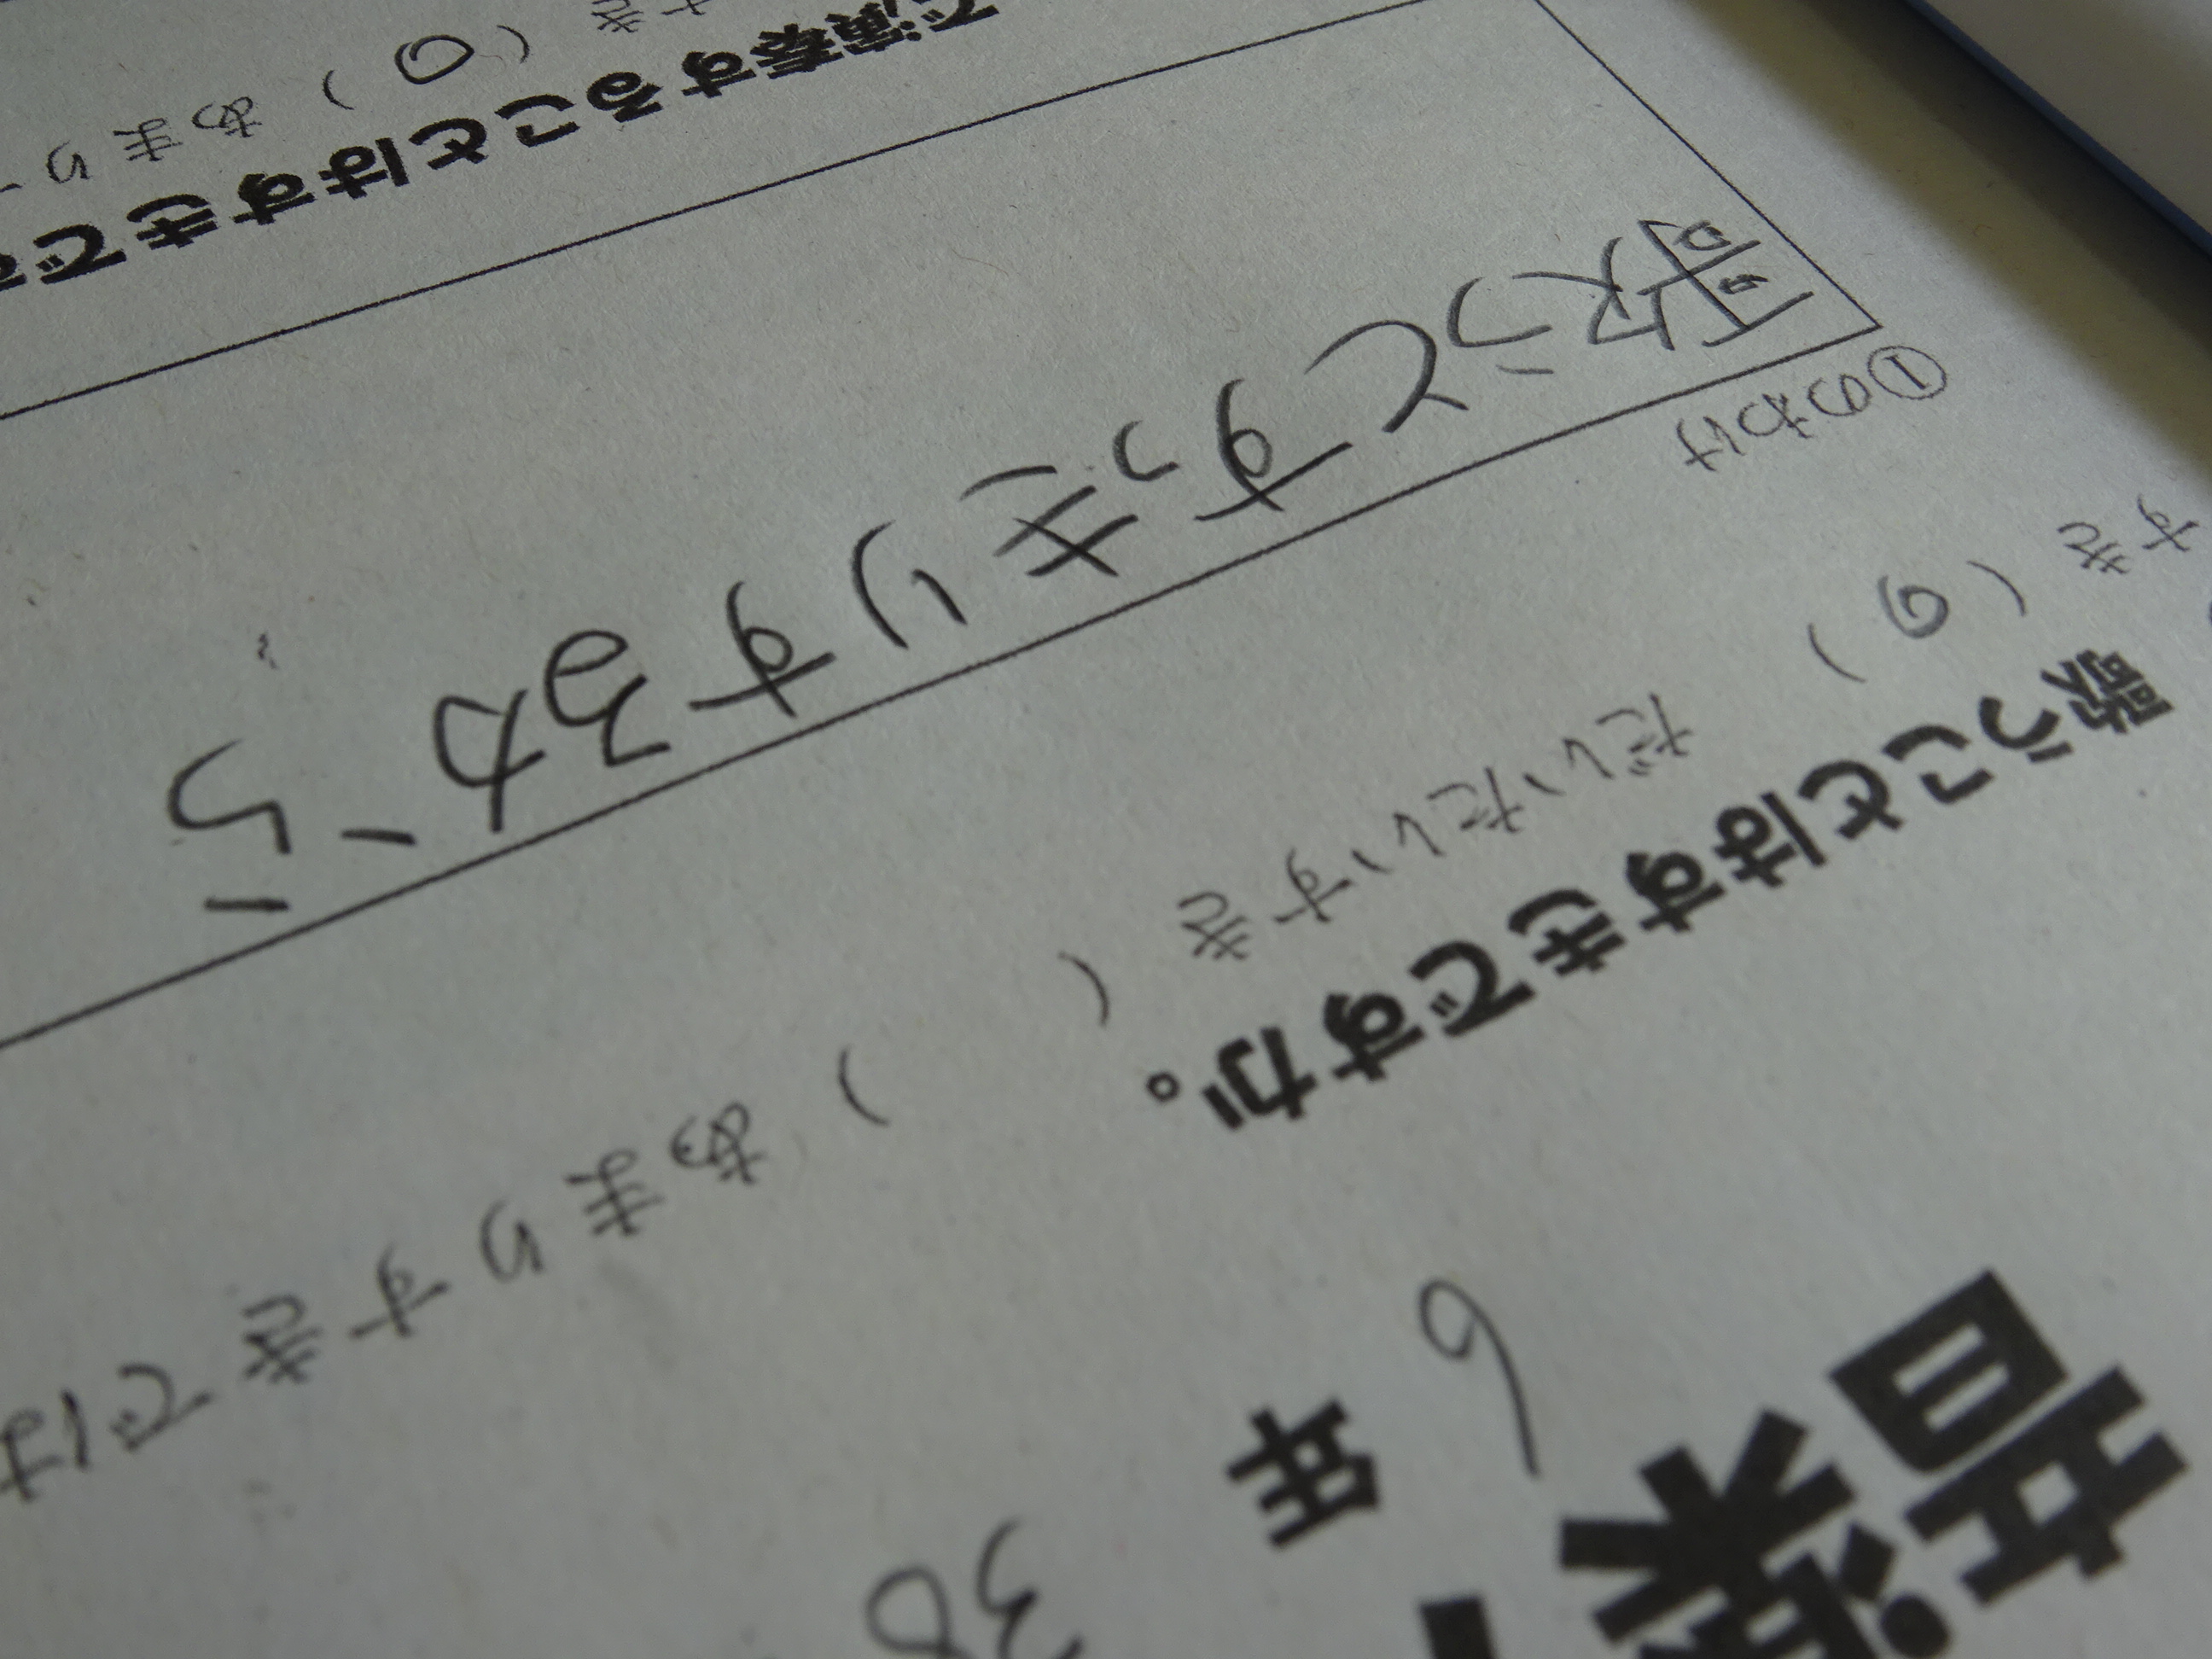 音楽
6年
30
歌うことはすきですか。
すき（○） だいたいすき（ ） あまりすきでは
①のわけ
歌うとすっきりするから
で演奏することはすきで
すき（○） あまり